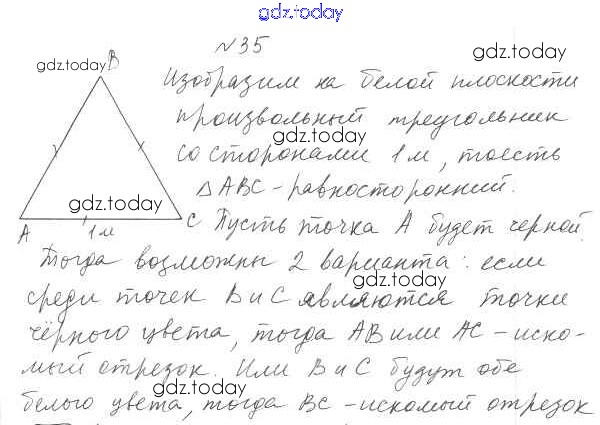 gdz.today
№35
gdz.today B gdz.today
Изобразим на белой плоскости
произвольный треугольник
gdz.today
со сторонами 1м, тоесть
gdz.today ΔABC - равносторонний.
A 1м C Пусть точка A будет черной.
gdz.today gdz.today
Тогда возможны 2 варианта: если
среди точек B и C являются точки
gdz.today
чёрного цвета, тогда AB или AC - иско-
мый отрезок. Или B и C будут обе
gdz.today
белого цвета, тогда BC - искомый отрезок